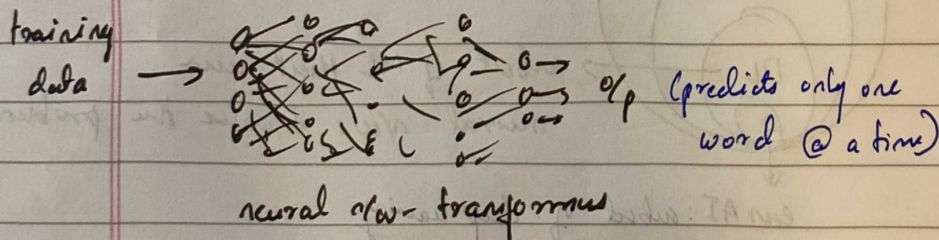 training
data → → o/p (predicts only one
word @ a time)
neural n/w - transformers